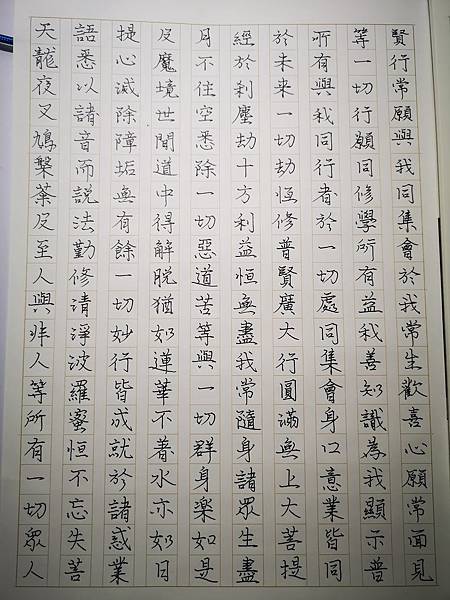 天龍夜叉鳩槃荼及至人與非人等所有一切眾人
語悉以諸音而說法勤修清淨波羅蜜恒不忘失菩
提心滅除障垢無有餘一切妙行皆成就於諸惑業
及魔境世間道中得解脫猶如蓮華不著水亦如日
月不住空悉除一切惡道苦等與一切群身樂如是
經於剎塵劫十方利益恒無盡我常隨身諸眾生盡
於未來一切劫恒修普賢廣大行圓滿無上大菩提
所有與我同行者於一切處同集會身口意業皆同
等一切行願同修學所有益我善知識為我顯示普
賢行常願與我同集會於我常生歡喜心願常面見